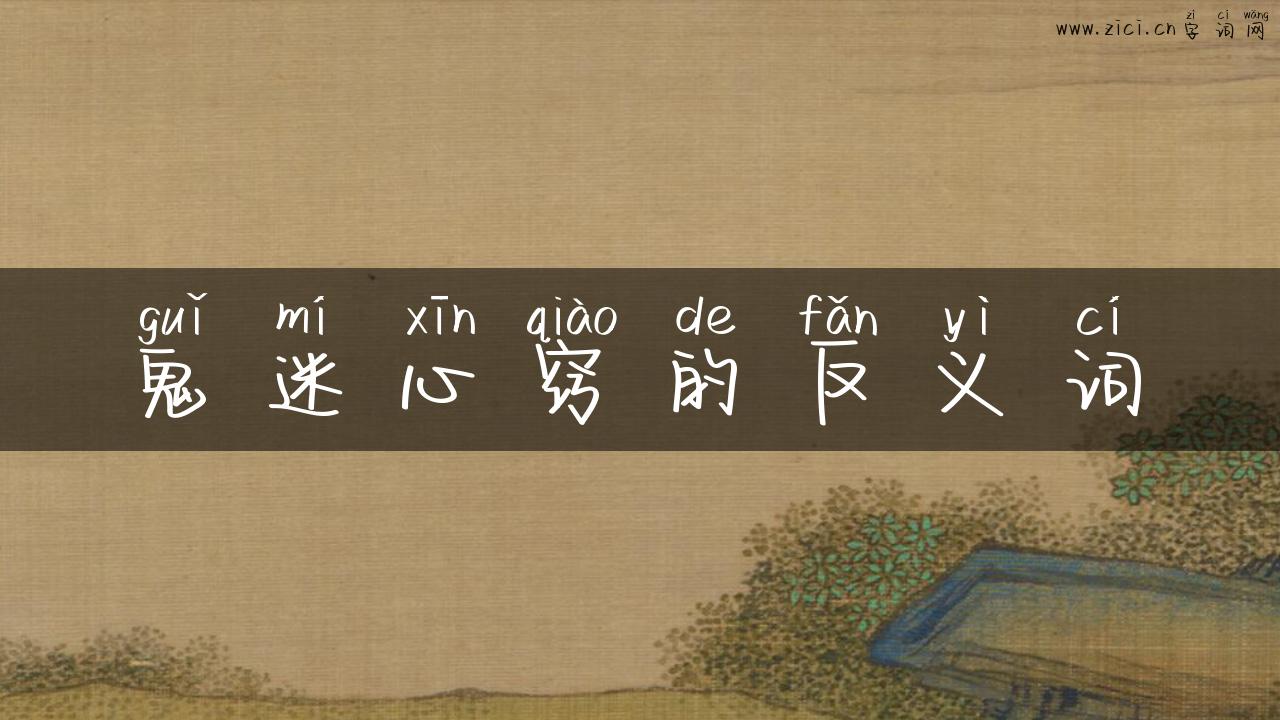 zì cí wǎng
www.zici.cn 字词网
guǐ mí xīn qiào de fǎn yì cí
鬼迷心窍的反义词